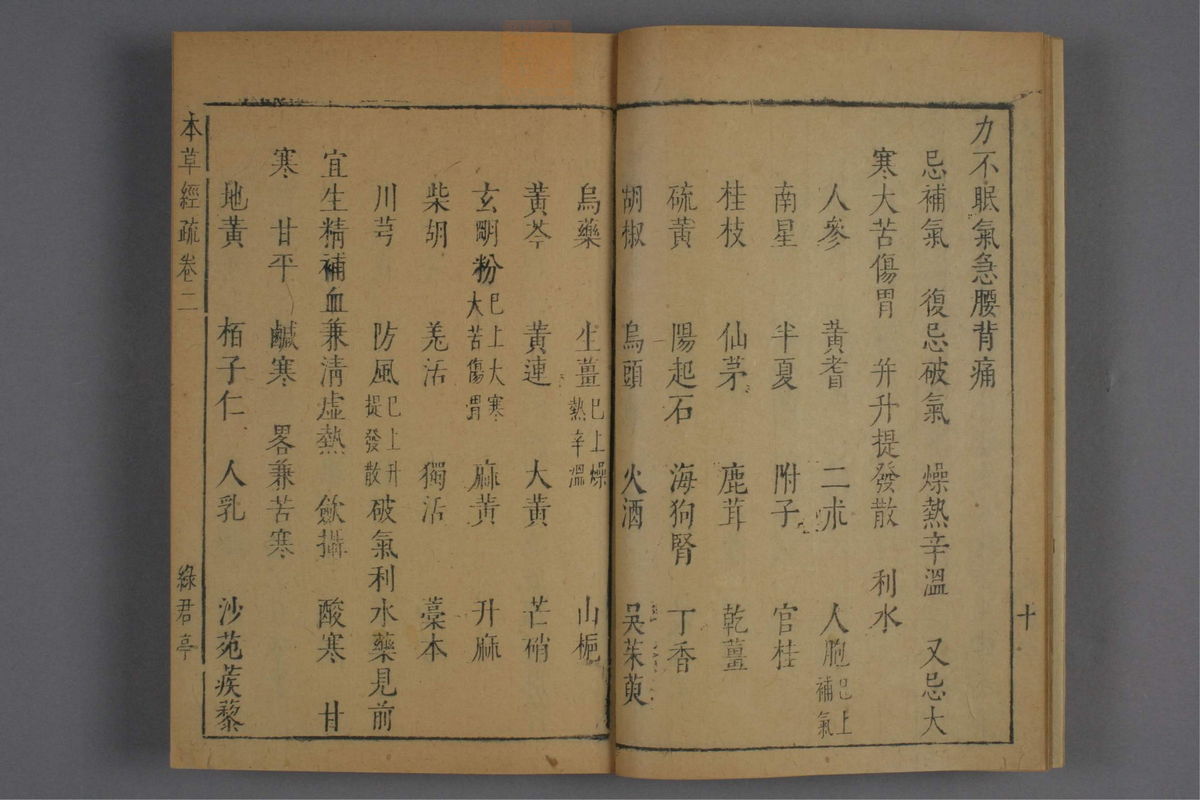 力不眠氣急腰背痛
忌補氣　復忌破氣　燥熱辛溫　又忌大
寒大苦傷胃　幷升提發散　利水
人參　黃耆　二朮　人胞已上補氣
南星　半夏　附子　官桂
桂枝　仙茅　鹿茸　乾薑
硫黃　陽起石　海狗腎　丁香
胡椒　烏頭　火酒　吳茱萸
十
烏藥　生薑已上燥熱辛溫　山梔
黃芩　黃連　大黃　芒硝
玄明粉已上大寒大苦傷胃　麻黃　升麻
柴胡　羌活　獨活　藁本
川芎　防風已上升提發散　破氣利水藥見前
宜生精補血兼清虛熱　斂攝　酸寒　甘
寒　甘平　鹹寒　畧兼苦寒
地黃　栢子仁　人乳　沙苑蒺藜
本草經疏卷二　綠君亭